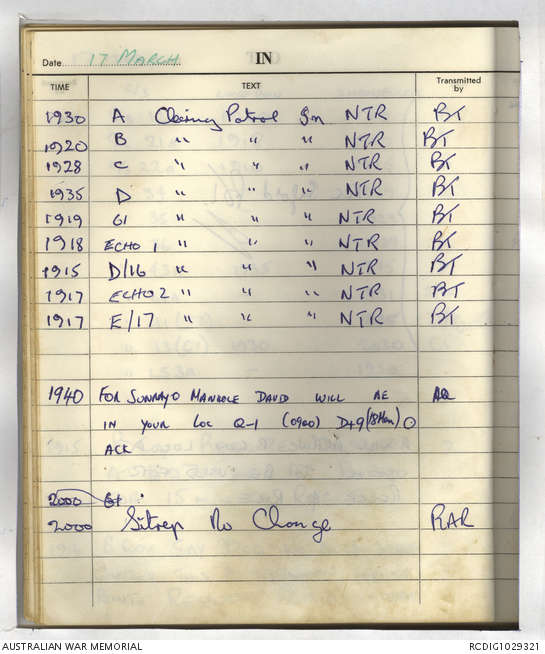 Date 17 MARCH IN
TIME TEXT Transmitted by
1930 A Clearing Patrol In NTR BT
1920 B " " " NTR BT
1928 C " " " NTR BT
1935 D " " " NTR BT
1919 61 " " " NTR BT
1918 ECHO 1 " " " NTR BT
1915 D/16 " " " NTR BT
1917 ECHO 2 " " " NTR BT
1917 E/17 " " " NTR BT
1940 FOR SUNRAY DAVID WILL BE
IN YOUR LOC Q-1 (0900) D+9 (18 Mar) O
ACK
2000
2000 Sitrep No Change RAR
AUSTRALIAN WAR MEMORIAL RCDIG1029321